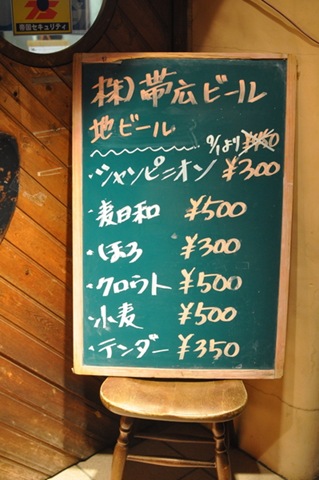 帝国セキュリティ
株)帯広ビール
地ビール
9/1より
・シャンピニオン ¥300
・麦日和 ¥500
・ほろ ¥300
・クロウト ¥500
・小麦 ¥500
・テンダー ¥350